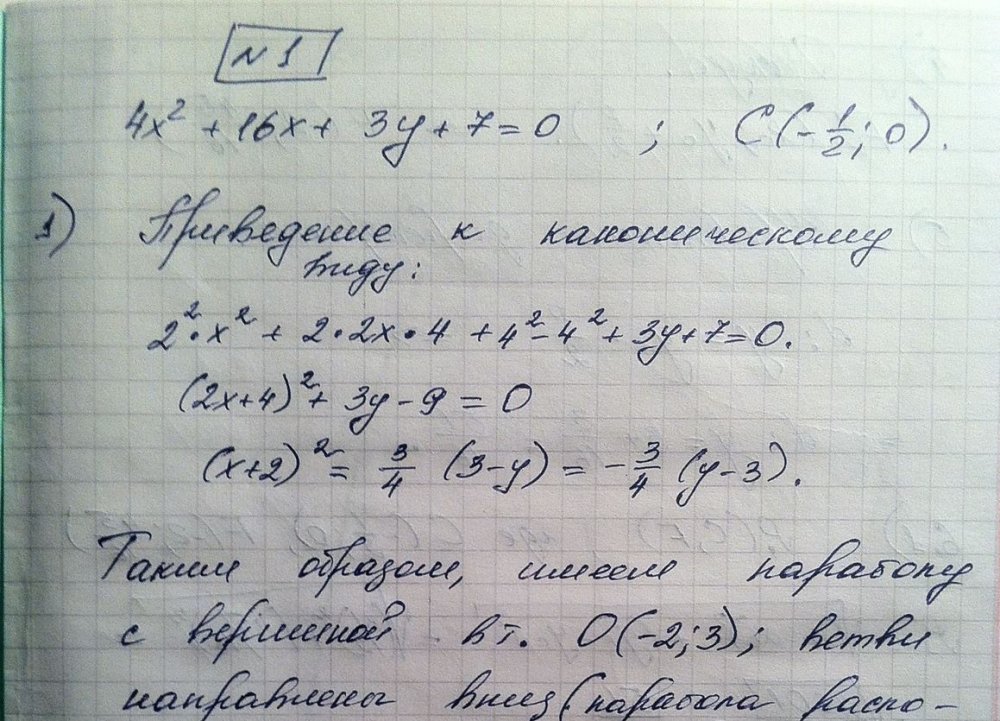 N 1
4x² + 16x + 3y + 7 = 0 ; C(-1/2; 0).
1) Приведение к каноническому
виду:
2²·x² + 2·2x·4 + 4² - 4² + 3y + 7 = 0.
(2x+4)² + 3y - 9 = 0
(x+2)² = 3/4 (3-y) = -3/4 (y-3).
Таким образом, имеем параболу
с вершиной в т. O(-2; 3); ветви
направлены вниз (парабола распо-